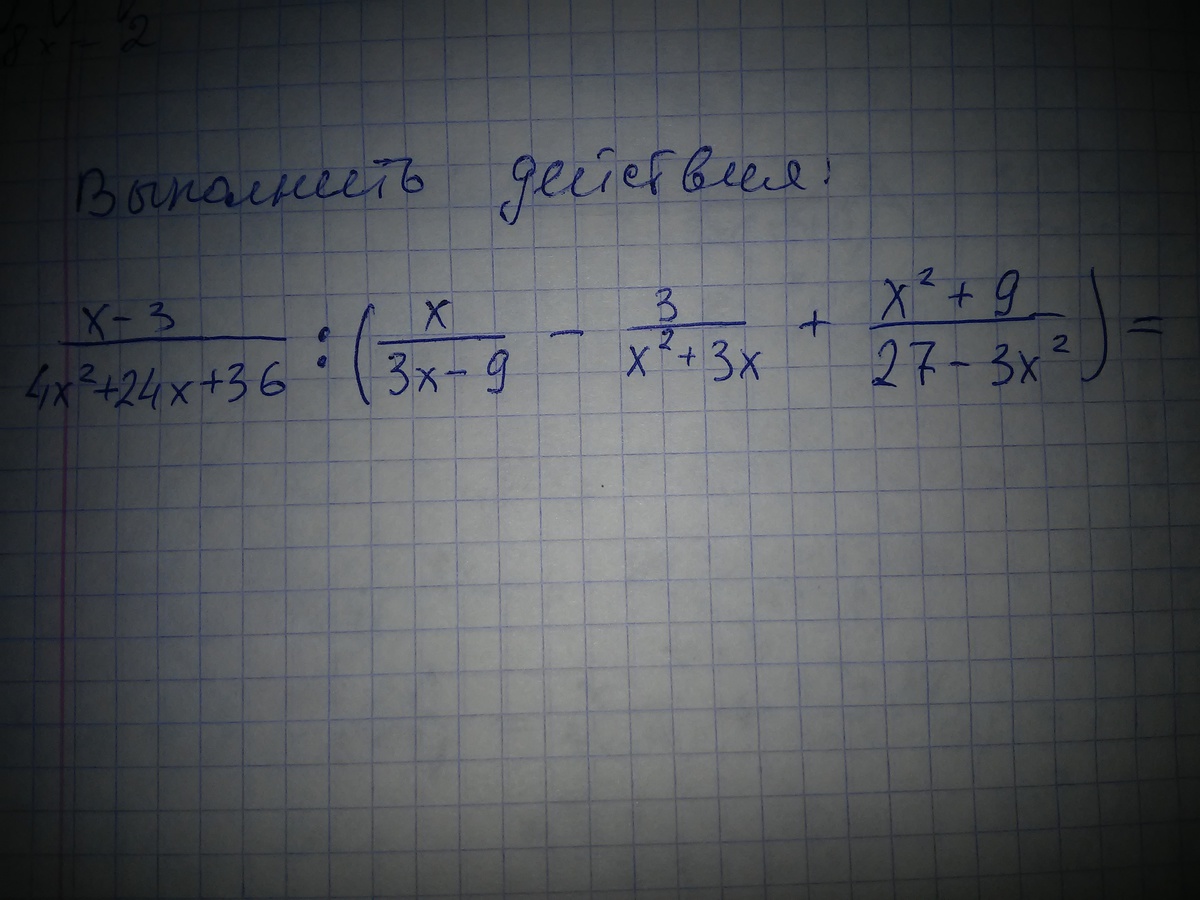 Выполнить действия:
x-3/4x²+24x+36 : (x/3x-9 - 3/x²+3x + x²+9/27-3x²) =